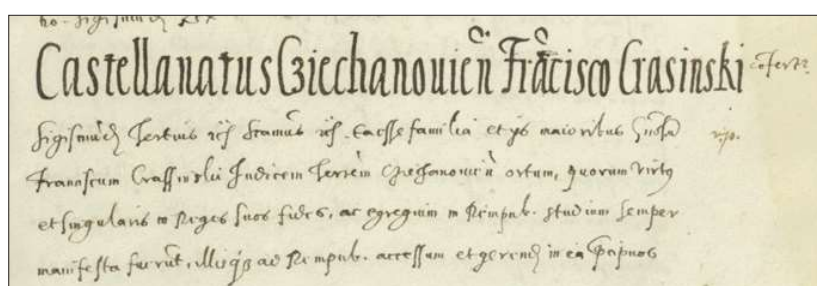 Castellanatus Cziechanouicñ Frãcisco Crasinski cõfertr
Sigismũdg Tertius etc Scimus etc Ea esse familia et ijs maioribus
Franciscum Crassinskii Iudicem Terreñ Cziechanouicñ ortum, quorum virtus
et singularis in Reges suos fides, ac egregium in Rempub. studium semper
manifesta fuerũt, illisq3 ad Rempub. accessum et gerendi in ea